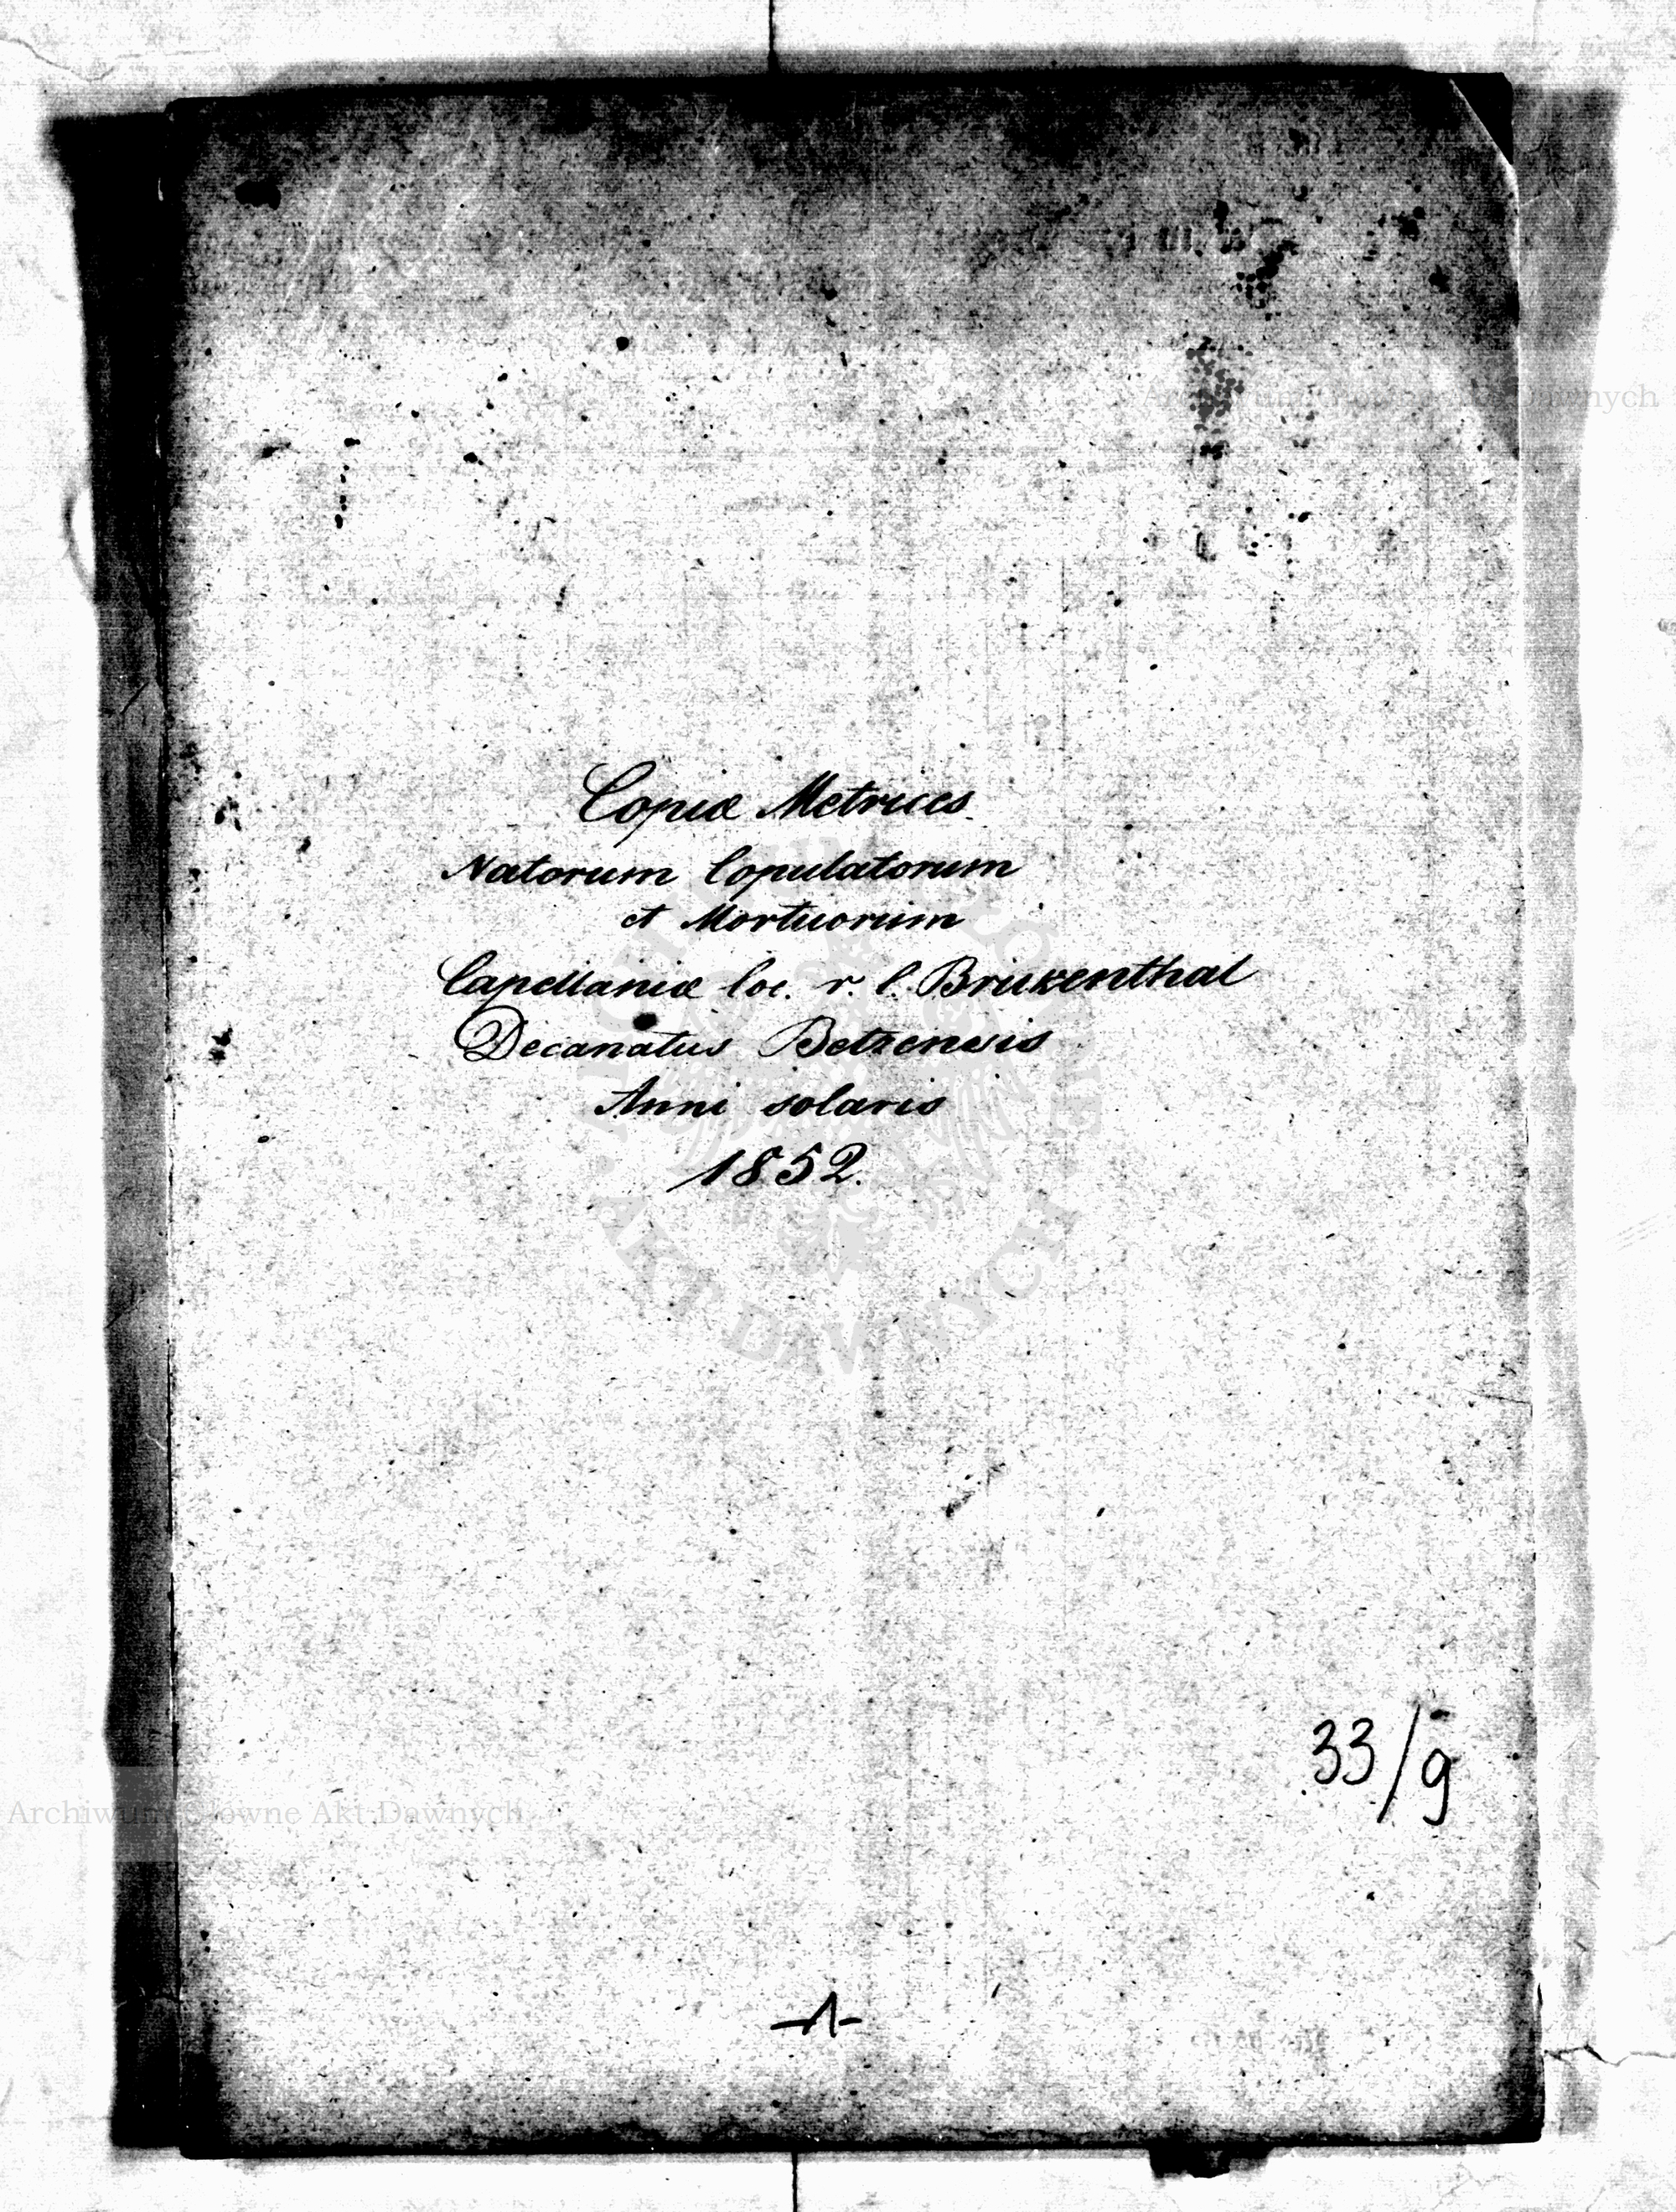 Copiæ Metrices
Natorum Copulatorum
et Mortuorum
Capellaniæ loc. r. l. Brukenthal
Decanatus Betzensis
Anni solaris
1852.
33/g
-1-
Archiwum Główne Akt Dawnych
Archiwum Główne Akt Dawnych
AKT DAWNYCH